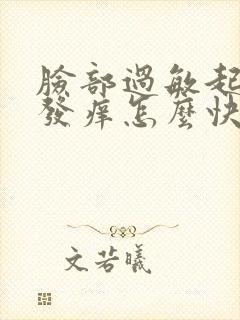 臉部過敏起
發癢怎麼快
文若曦